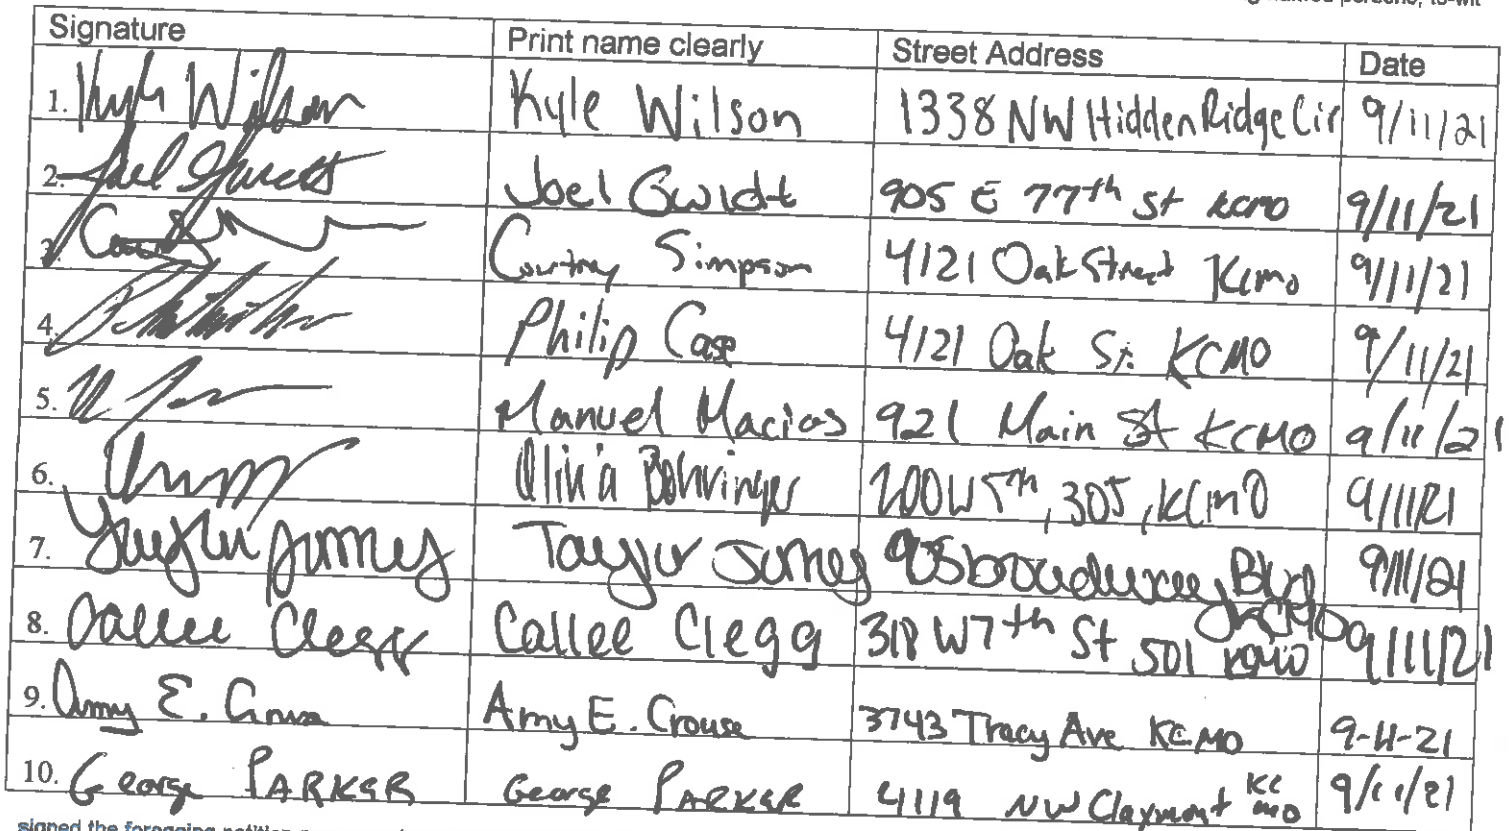 named persons, to-wit
Signature Print name clearly Street Address Date
1. Kyle Wilson Kyle Wilson 1338 NW Hidden Ridge Cir 9/11/21
2. Joel Gwidt 905 E 77th St KCMO 9/11/21
3. Courtney Simpson 4121 Oak Street KCMO 9/11/21
4. Philip Case 4121 Oak St. KCMO 9/11/21
5. Manuel Macias 921 Main St KCMO 9/11/21
6. Olivia Bohringer 200 W 5th, 305, KCMO 9/11/21
7. Taylor Jumey Broadway Blvd 9/11/21
KCMO
8. Callee Clegg Callee Clegg 318 W 7th St 501 KCMO 9/11/21
9. Amy E. Crouse Amy E. Crouse 3743 Tracy Ave KCMO 9-11-21
10. George PARKER George PARKER 4119 NW Claymont KC MO 9/11/21
signed the foregoing petition